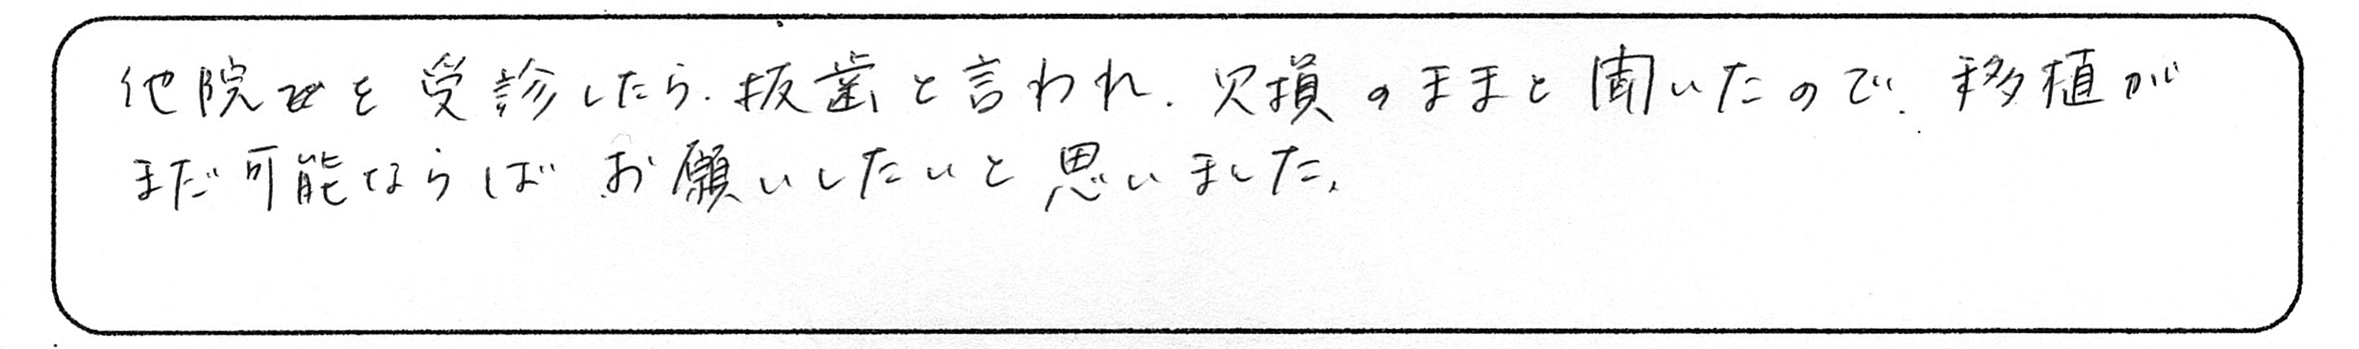 他院を受診したら、抜歯と言われ、欠損のままと聞いたので、移植が
まだ可能ならばお願いしたいと思いました。